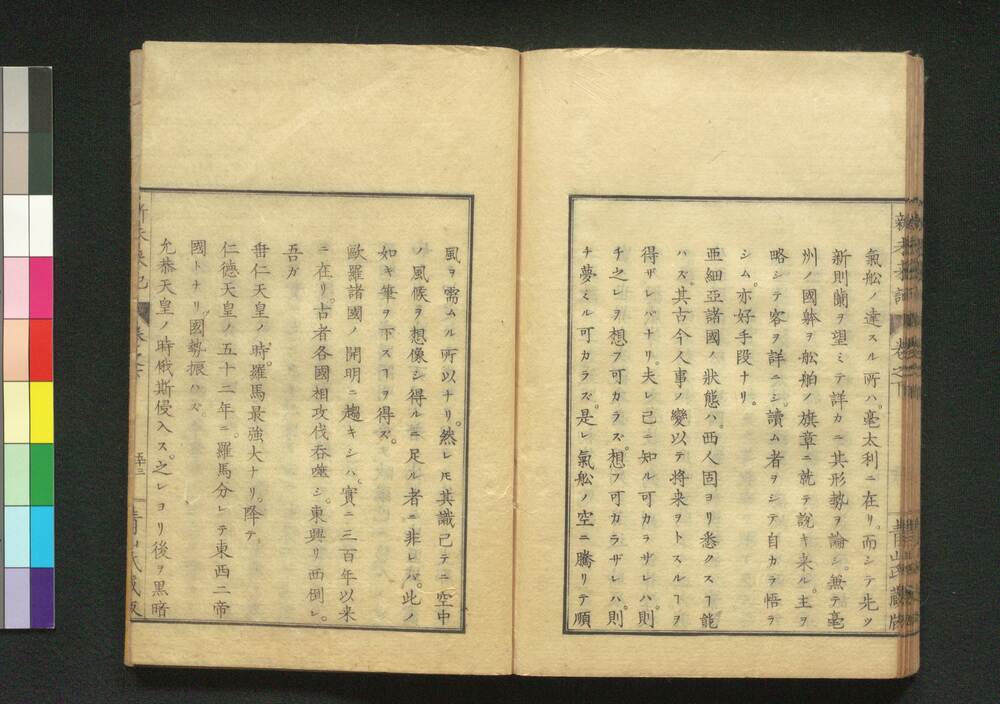 氣舩ノ達スル所ハ。毫太利ニ在リ。而シテ先ツ
新則蘭ヲ望ミテ詳カニ其形勢ヲ論シ。無テ毫
州ノ國躰ヲ舩舶ノ旗章ニ就テ說キ来ル。主ヲ
略シテ客ヲ詳ニシ。讀ム者ヲシテ自カラ悟ラ
シム。亦好手段ナリ。
亜細亞諸國ノ狀態ハ。西人固ヨリ悉クスヿ能
ハズ。其古今人事ノ變以テ将来ヲトスルヿヲ
得ザレバナリ。夫レ已ニ知ル可カラザレハ。則
チ之レヲ想フ可カラズ。想フ可カラザレハ。則
チ夢ミル可カラズ。是レ氣舩ノ空ニ騰リテ順
風ヲ需ムル所以ナリ。然レ𪜈其識己テニ空中
ノ風候ヲ想像シ得ルニ足ル者ニ非レバ。此ノ
如キ筆ヲ下スヿヲ得ズ。
歐羅諸國ノ開明ニ趨キシハ。實ニ三百年以来
ニ在リ。古者各國相攻伐呑噬シ。東興リ西倒レ。
吾カ
垂仁天皇ノ時。羅馬最強大ナリ。降テ
仁德天皇ノ五十二年ニ。羅馬分レテ東西二帝
國トナリ。國勢振ハズ。
允恭天皇ノ時俄斯侵入ス。之レヨリ後ヲ黒暗
新未来記
卷之下
青山氏蔵版